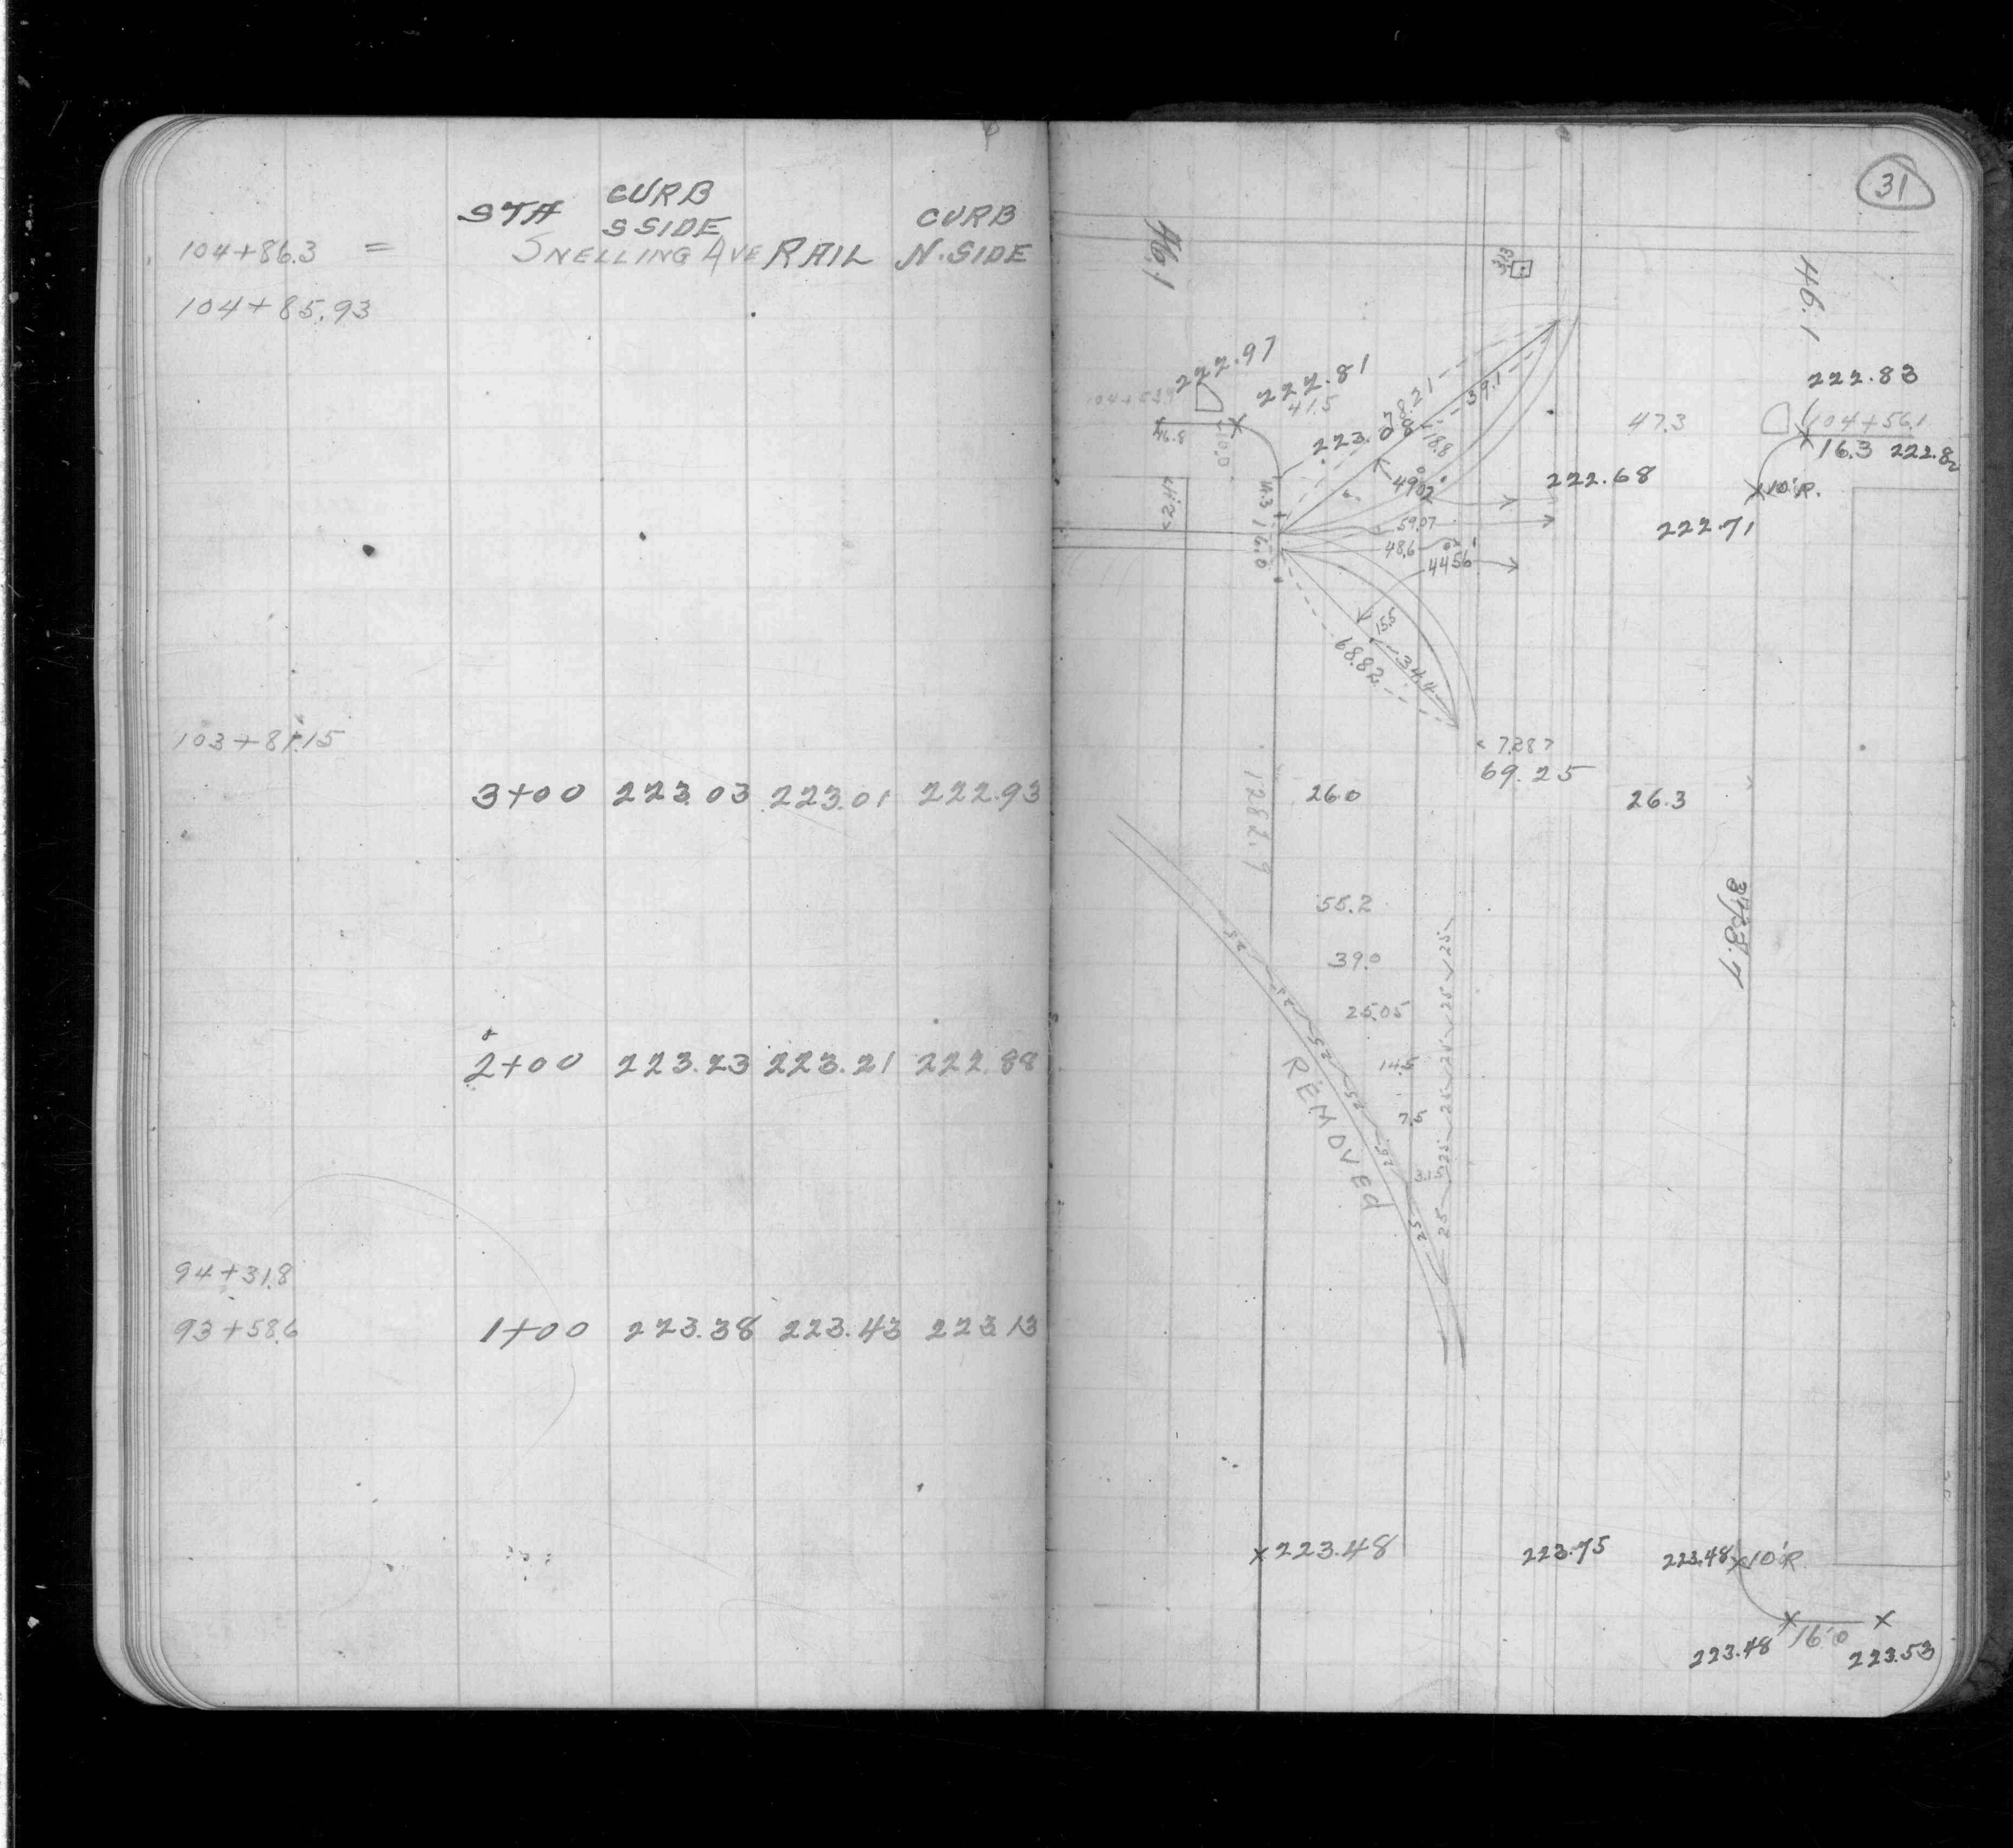 STA CURB S SIDE RAIL CURB N. SIDE
104+86.3 = SNELLING AVE
104+85.93
103+81.15
3+00 223.03 223.01 222.93
2+00 223.23 223.21 222.88
94+31.8
93+58.6
1+00 223.38 223.43 223.13
31
46.1
46.1
222.97
222.81
41.5
222.83
78.21
39.1
18.8
47.3
104+56.1
16.3 222.82
46.8
10.0
49°02'
222.68
10'R.
4.3
16.0
59.07
222.71
48.6
44°56'
15.5
68.82
34.4
7.287
69.25
26.0
26.3
1282.9
55.2
39.0
25.05
14.5
7.5
25 25 25 25 25 25
25 25 25 25 25 25
REMOVEd
x 223.48
223.75
223.48 x 10'R
16.0
223.48
223.53